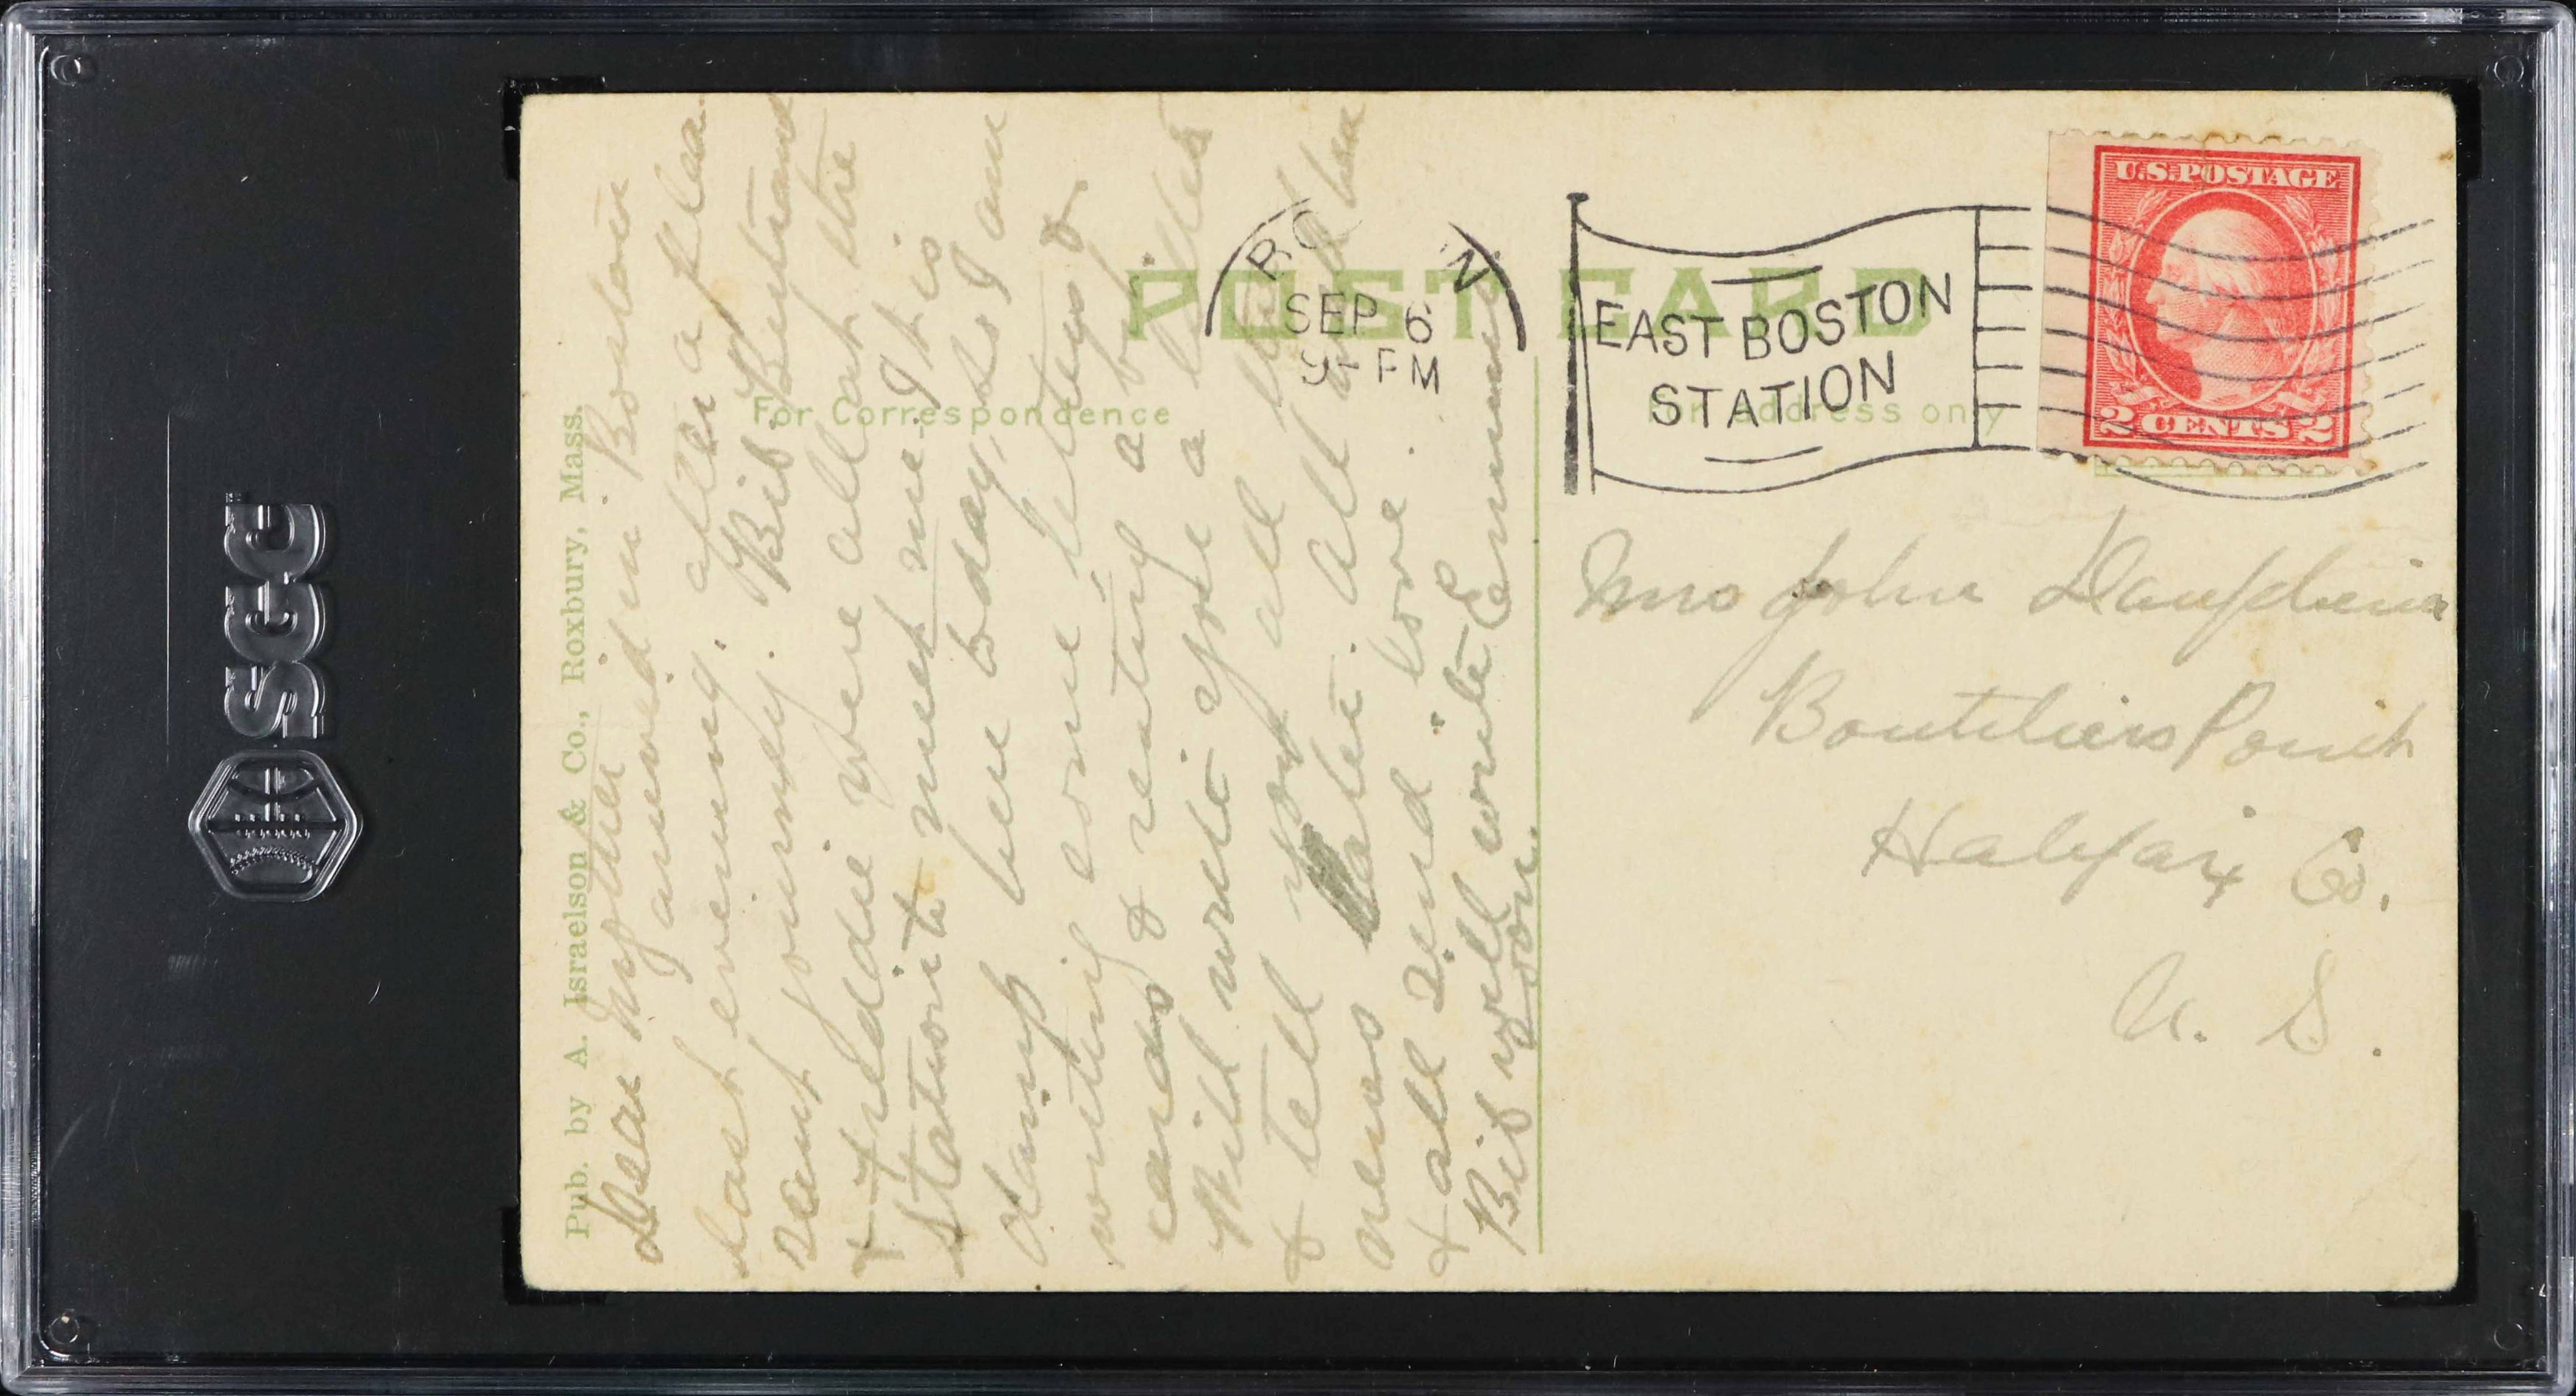 SGC
Pub. by A. Israelson & Co., Roxbury, Mass.
POST CARD
For Correspondence
For address only
BO N
SEP 6
9- PM
EAST BOSTON
STATION
U.S. POSTAGE
2 CENTS 2
Dear Mother
I arrived in Boston
last evening. after a plea
sant journey. Bib. Bertrand
+ Freddie were all at the
station to meet me. It is
damp here today, so I am
writing some letters &
cards & resting a bit.
Will write you a letter
& tell you all
news later. All
& all send love.
Bib will write Emma
soon.
Mrs John Dauphinee
Boutiliers Point
Halifax Co.
N. S.